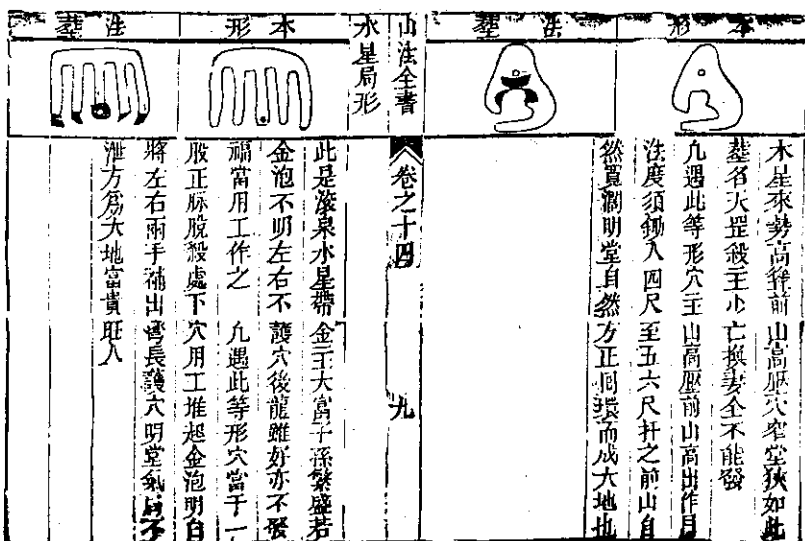 本形
葬法
木星來勢高聳前山高壓穴窄堂狹如此
葬名天罡殺主少亡換妻全不能發
凢遇此等形穴主山高壓前山高出作
法度須鋤入四尺至五六尺扦之前山自
然寬濶明堂自然方正囘環而成大地也
山法全書
卷之十四
九
水星局形
本形
葬法
此是滚泉水星帶金主大富子孫繁盛若
金泡不明左右不護穴後龍雖好亦不發
福當用工作之 凢遇此等形穴當于一
股正脉脫殺處下穴用工堆起金泡明白
將左右兩手補出彎長護穴明堂氣不
泄方爲大地富貴旺人